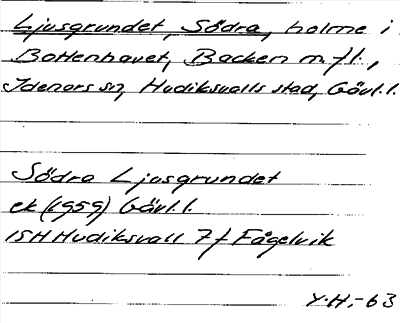 Ljusgrundet, Södra, holme i
Bottenhavet, Backen m.fl.,
Idenors sn, Hudiksvalls stad, Gävl.l.
Södra Ljusgrundet
ek (1959) Gävl.l.
15H Hudiksvall 7f Fågelvik
Y.H.-63